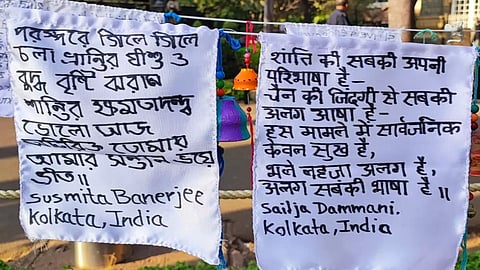 পরস্পরে গিলে গিলে
চলা প্রান্তির যীশু ও
বুদ্ধ বৃষ্টি ঝরান
শান্তির ক্ষমতাদন্দ্ব
ভোলো আজ
তোমায়
আমার সন্তান ভয়ে
ভীত॥
Susmita Banerjee
Kolkata, India
शांति की सबकी अपनी
परिभाषा है-
चैन की जिंदगी से सबकी
अलग भाषा है-
इस मामले में सार्वजनिक
केवल सुख है,
भले लहजा अलग है,
अलग सबकी भाषा है॥
Sailja Dammani.
Kolkata, India